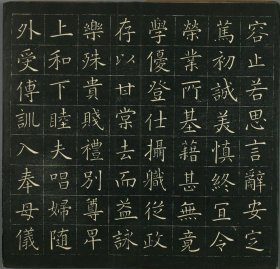 容止若思言辭安定
篤初誠美慎終宜令
榮業所基籍甚無竟
學優登仕攝職從政
存以甘棠去而益詠
樂殊貴賤禮別尊卑
上和下睦夫唱婦隨
外受傅訓入奉母儀